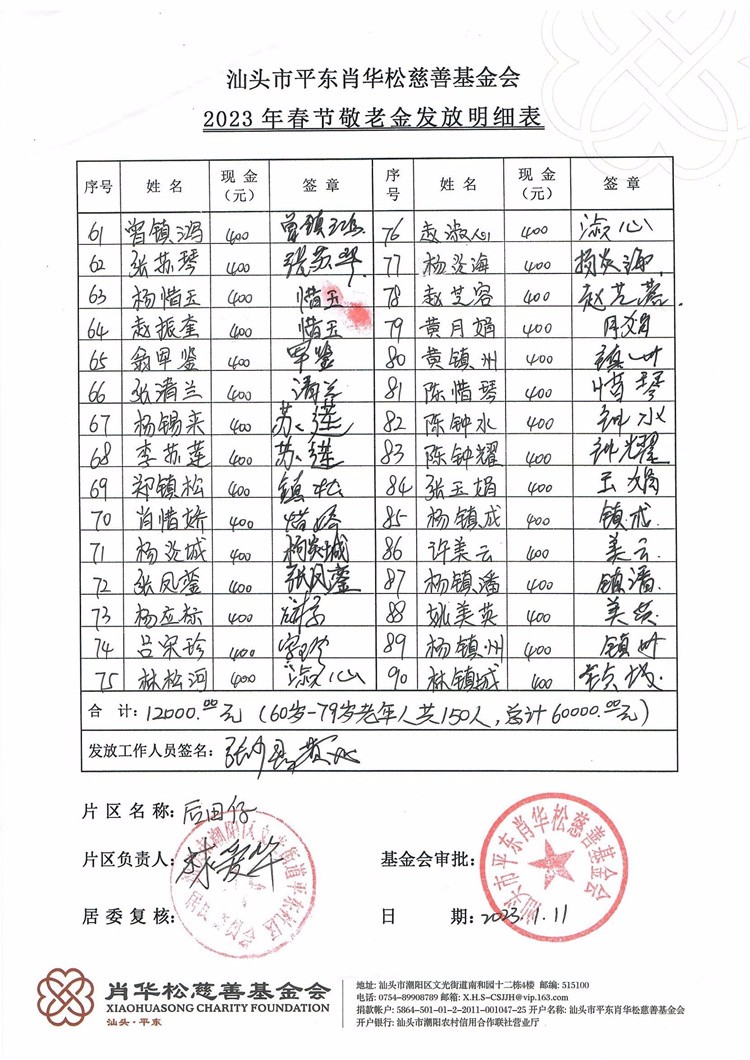 汕头市平东肖华松慈善基金会
2023年春节敬老金发放明细表
序号 姓名 现金（元） 签章 序号 姓名 现金（元） 签章
61 曾镇鸿 400 曾镇鸿 76 赵淑 400 淑心
62 张苏琴 400 张苏琴 77 杨炎海 400 杨炎海
63 杨惜玉 400 惜玉 78 赵芝容 400 赵芝蓉
64 赵振奎 400 惜玉 79 黄月娟 400 月娟
65 翁甲鉴 400 甲鉴 80 黄镇州 400 镇州
66 张清兰 400 清兰 81 陈惜琴 400 惜琴
67 杨锡来 400 苏莲 82 陈钟水 400 钟水
68 李苏莲 400 苏莲 83 陈钟耀 400 钟耀
69 郑镇松 400 镇松 84 张玉娟 400 玉娟
70 肖惜娇 400 惜娇 85 杨镇成 400 镇成
71 杨炎城 400 杨炎城 86 许美云 400 美云
72 张凤銮 400 张凤銮 87 杨镇潘 400 镇潘
73 杨应标 400 88 姚美英 400 美英
74 吕宋珍 400 89 杨镇州 400 镇州
75 林松河 400 淑心 90 林镇城 400 镇城
合计：12000.00元（60岁-79岁老年人共150人，总计60000.00元）
发放工作人员签名：
片区名称：后田仔
片区负责人：林爱华 基金会审批：
居委复核： 日期：2023.1.11
汕头市平东肖华松慈善基金会
肖华松慈善基金会
XIAOHUASONG CHARITY FOUNDATION
汕头·平东
地址: 汕头市潮阳区文光街道南和园十二栋4楼 邮编: 515100
电话: 0754-89908789 邮箱: X.H.S-CSJJH@vip.163.com
捐款帐户: 5864-501-01-2-2011-001047-25 开户名称: 汕头市平东肖华松慈善基金会
开户银行: 汕头市潮阳农村信用合作联社营业厅